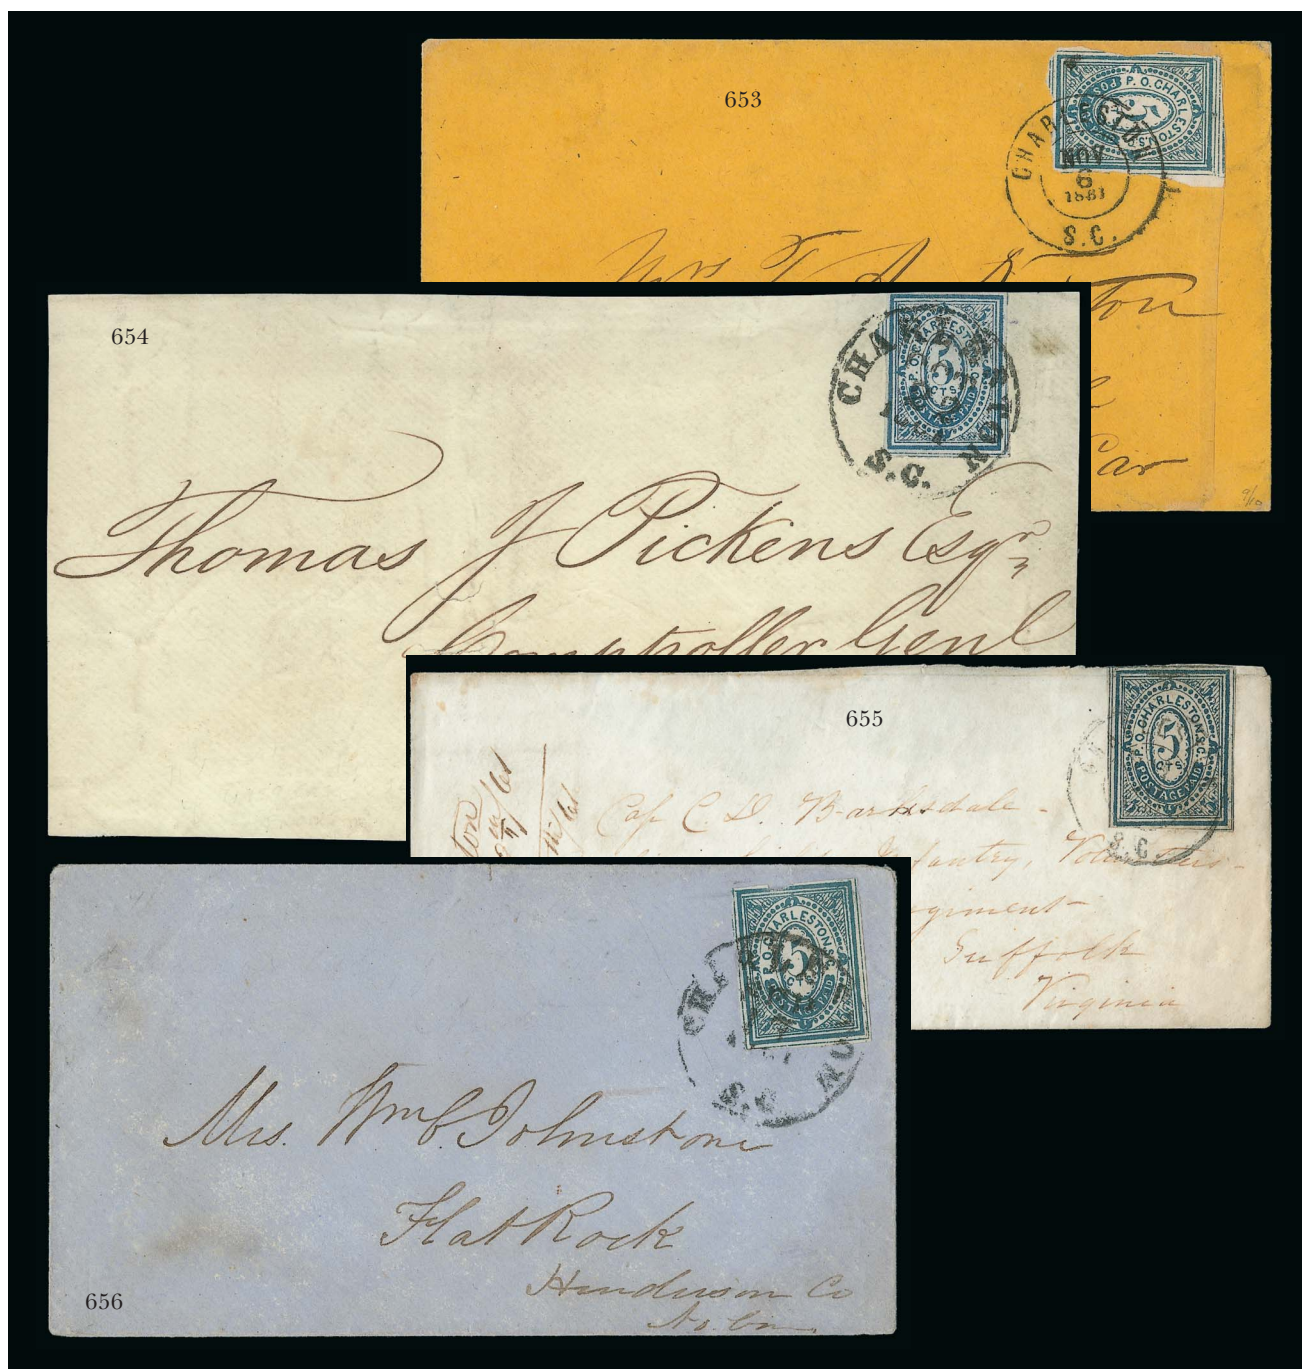 653
P.O. CHARLESTO
5
CHARLESTON
NOV
6
1861
S.C.
Mrs T. A.
ton
Car
9/10
654
P.O. CHARLESTON S.C.
5
CTS.
POSTAGE PAID
CHARLES
TON
S.C.
Thomas J Pickens Esqr
Comptroller Genl
655
P.O. CHARLESTON. S.C.
5
CTS.
POSTAGE PAID
S.C
ton
/61
Cap C. D. Barksdale -
Infantry, Volunteers -
giment
Suffolk
Virginia
656
P.O. CHARLESTON. S.C.
5
CTS
POSTAGE PAID
Mrs. Wm C. Johnstone
Flat Rock
Henderson Co
No. Ca.